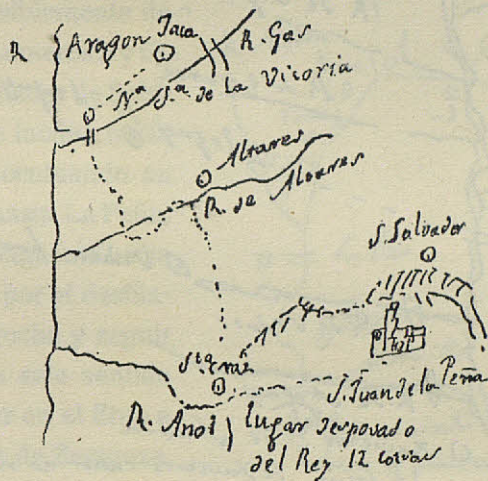 R. Aragon Jaca
R. Gas
N.ª S.ª de la Vitoria
Atrares
R. de Atrares
S. Salvador
S.ª Cruz
S. Juan de la Peña
R. Anol
lugar despovado
del Rey 12